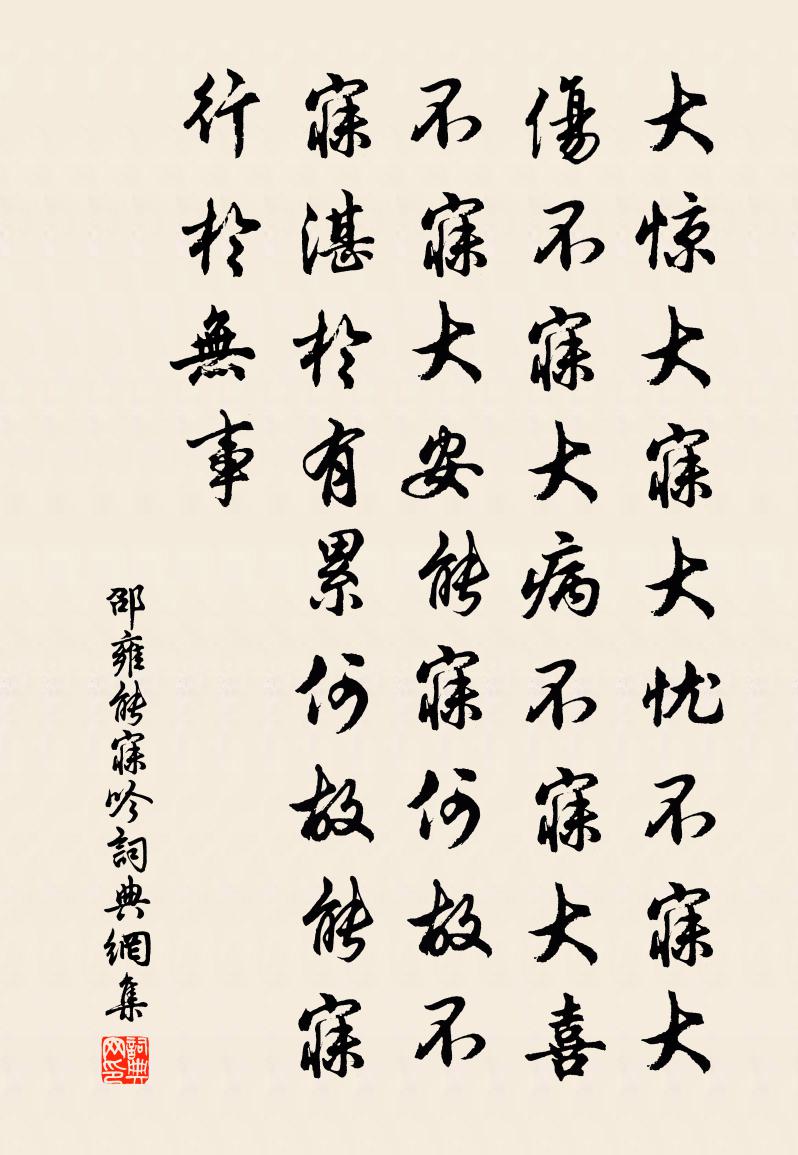 大惊大寐大忧不寐大
傷不寐大病不寐大喜
不寐大安能寐何故不
寐湛於有累何故能寐
行於無事
邵雍能寐吟詞典網集
詞典网印